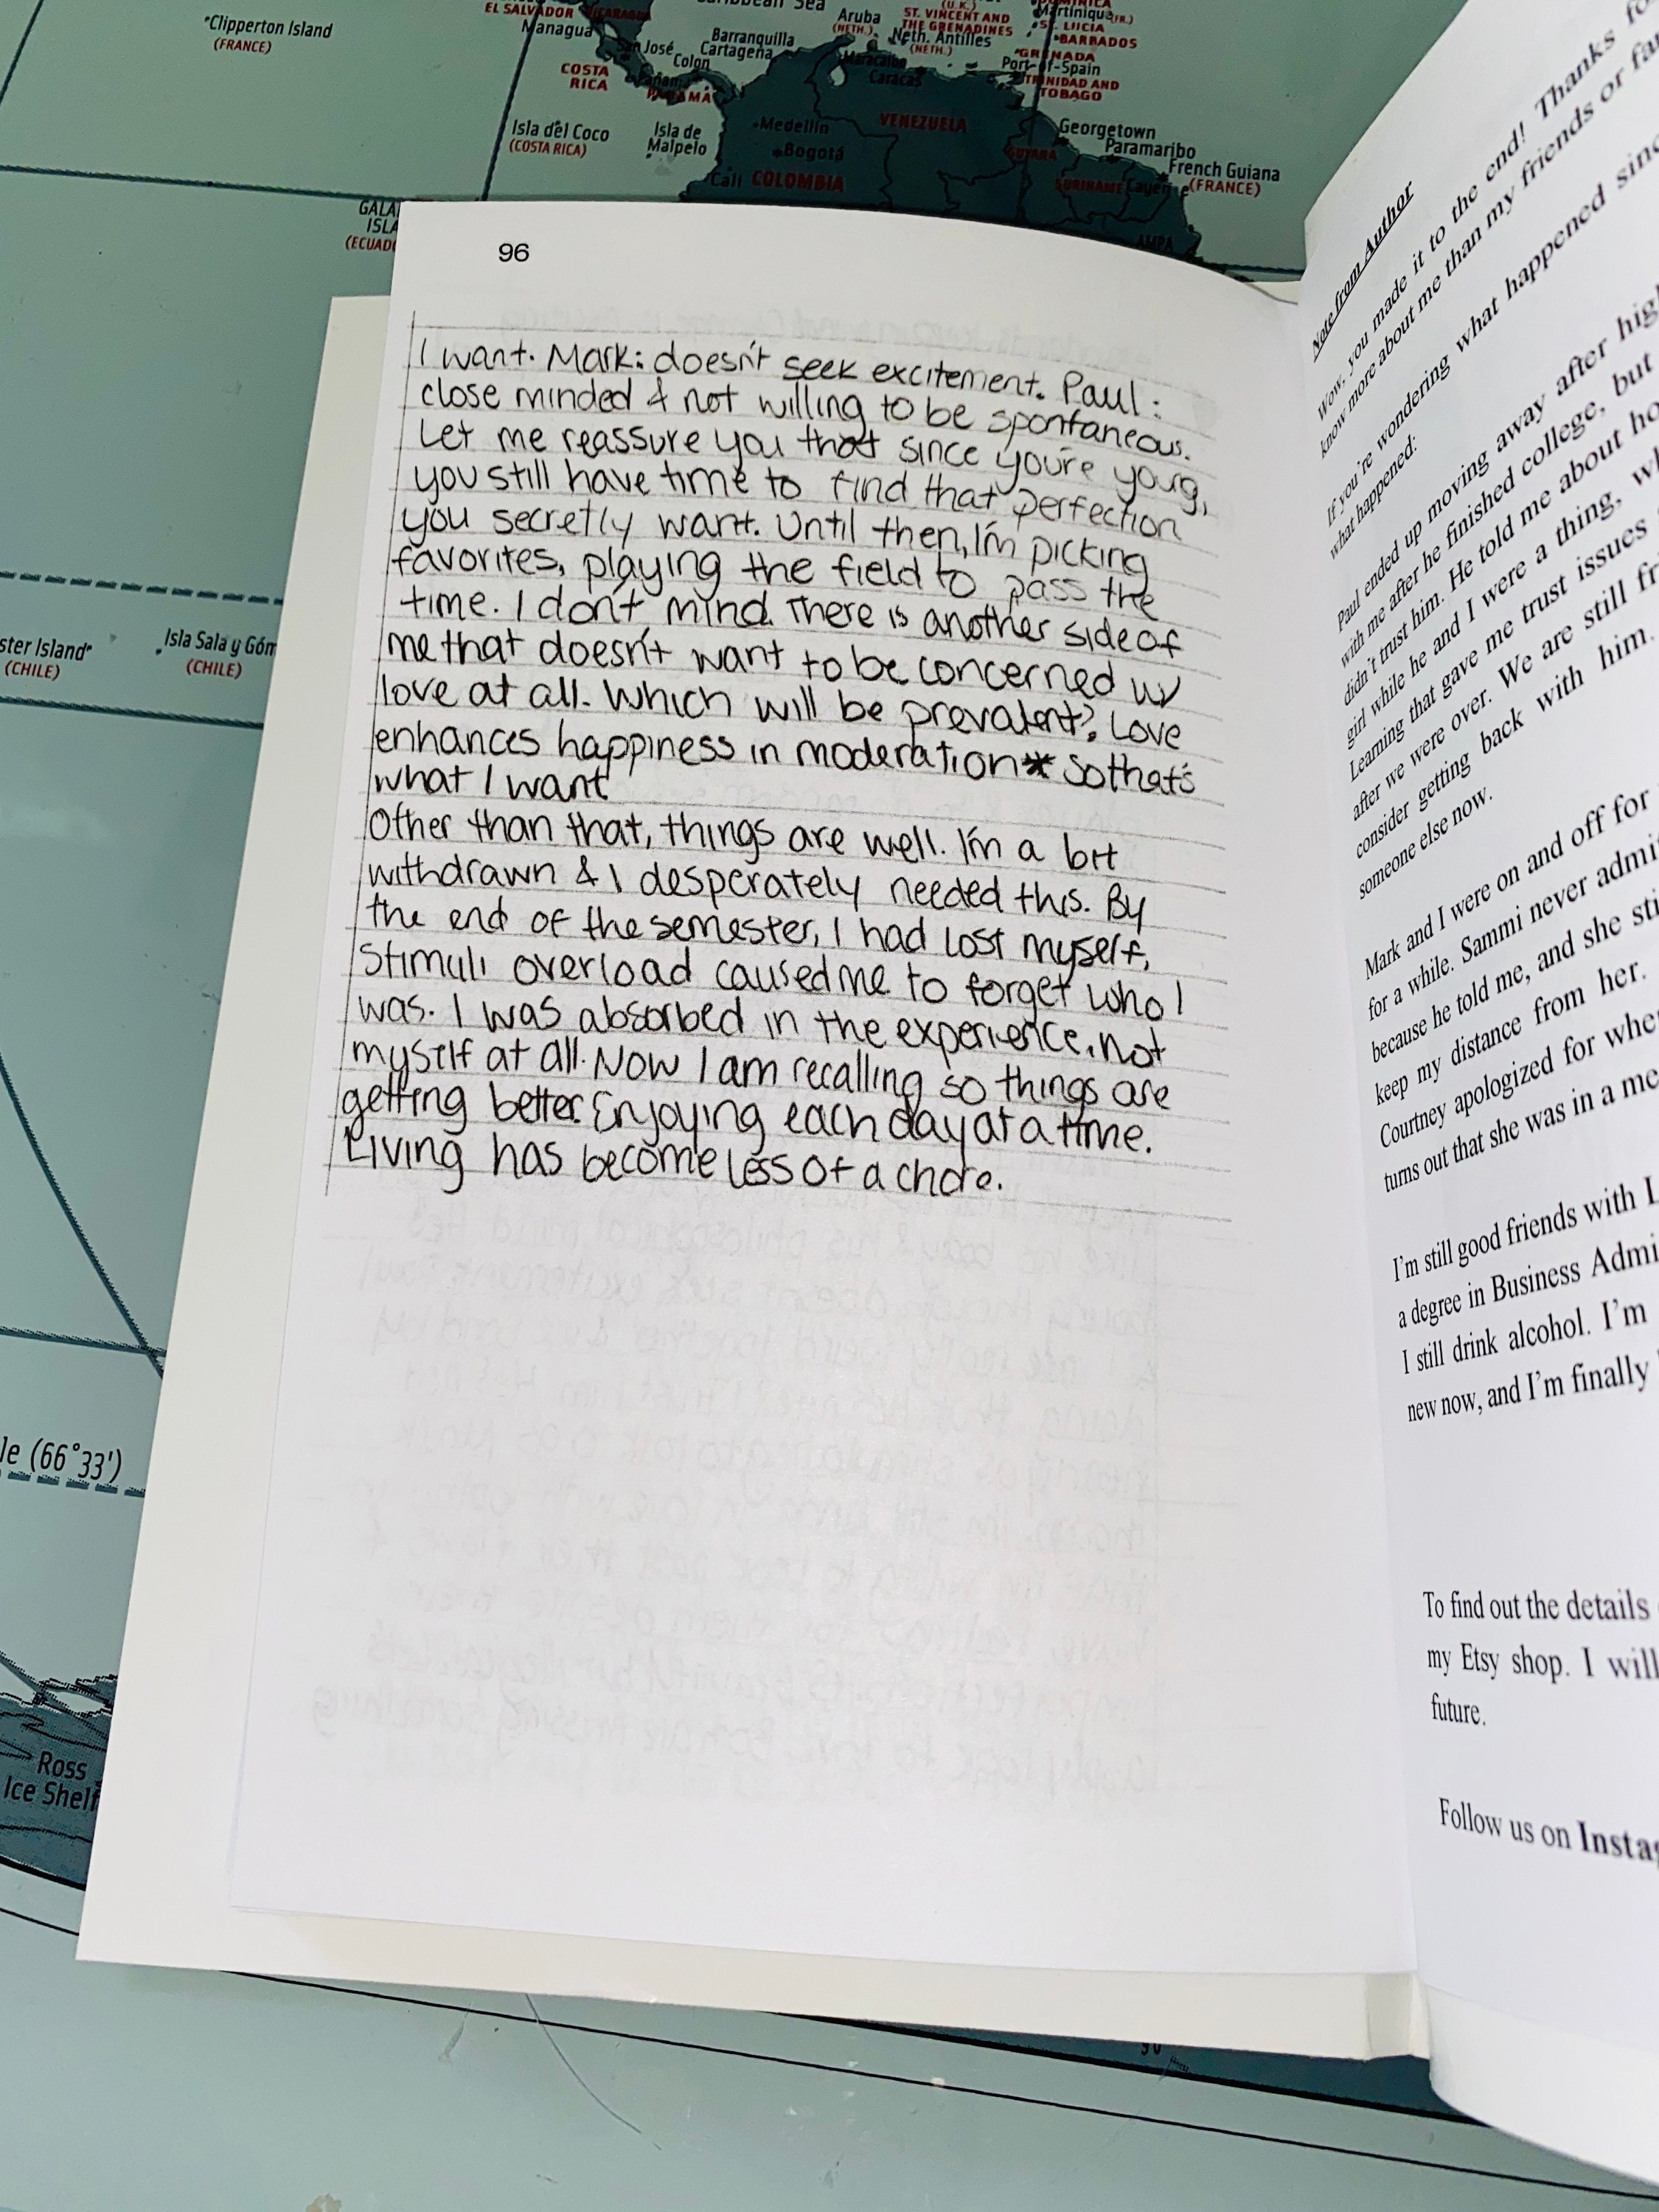 Clipperton Island
(FRANCE)
EL SALVADOR
NICARAGUA
Managua
San José
COSTA
RICA
Colon
Panama
PANAMA
Barranquilla
Cartagena
Caribbean Sea
Aruba
(NETH.)
Maracaibo
Caracas
(U.K.)
ST. VINCENT AND
THE GRENADINES
Neth. Antilles
(NETH.)
DOMINICA
Martinique (FR.)
ST. LUCIA
BARBADOS
GRENADA
Port-of-Spain
TRINIDAD AND
TOBAGO
Isla del Coco
(COSTA RICA)
Isla de
Malpelo
Medellín
Bogotá
Cali COLOMBIA
VENEZUELA
Georgetown
Paramaribo
GUYANA
SURINAME
French Guiana
(FRANCE)
GALA
ISLA
(ECUAD
AMPA
ster Island
(CHILE)
Isla Sala y Góm
(CHILE)
le (66°33')
Ross
Ice Shelf
96
I want. Mark: doesn't seek excitement. Paul:
close minded & not willing to be spontaneous.
Let me reassure you that since you're young,
you still have time to find that perfection
you secretly want. Until then, I'm picking
favorites, playing the field to pass the
time. I don't mind. There is another side of
me that doesn't want to be concerned w/
love at all. Which will be prevalent? Love
enhances happiness in moderation* so that's
what I want
Other than that, things are well. I'm a bit
withdrawn & I desperately needed this. By
the end of the semester, I had lost myself,
Stimuli overload caused me to forget who I
was. I was absorbed in the experience, not
myself at all. Now I am recalling so things are
getting better. Enjoying each day at a time.
Living has become less of a chore.
Note from Author
Wow, you made it to the end! Thanks fo
know more about me than my friends or fa
If you're wondering what happened sinc
what happened:
Paul ended up moving away after hig
with me after he finished college, but
didn't trust him. He told me about ho
girl while he and I were a thing, wh
Learning that gave me trust issues
after we were over. We are still fri
consider getting back with him.
someone else now.
Mark and I were on and off for
for a while. Sammi never admit
because he told me, and she sti
keep my distance from her.
Courtney apologized for whe
turns out that she was in a me
I'm still good friends with L
a degree in Business Admi
I still drink alcohol. I'm
new now, and I'm finally
To find out the details
my Etsy shop. I will
future.
Follow us on Instag